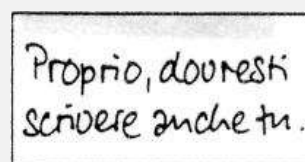 Proprio, dovresti
scrivere anche tu.